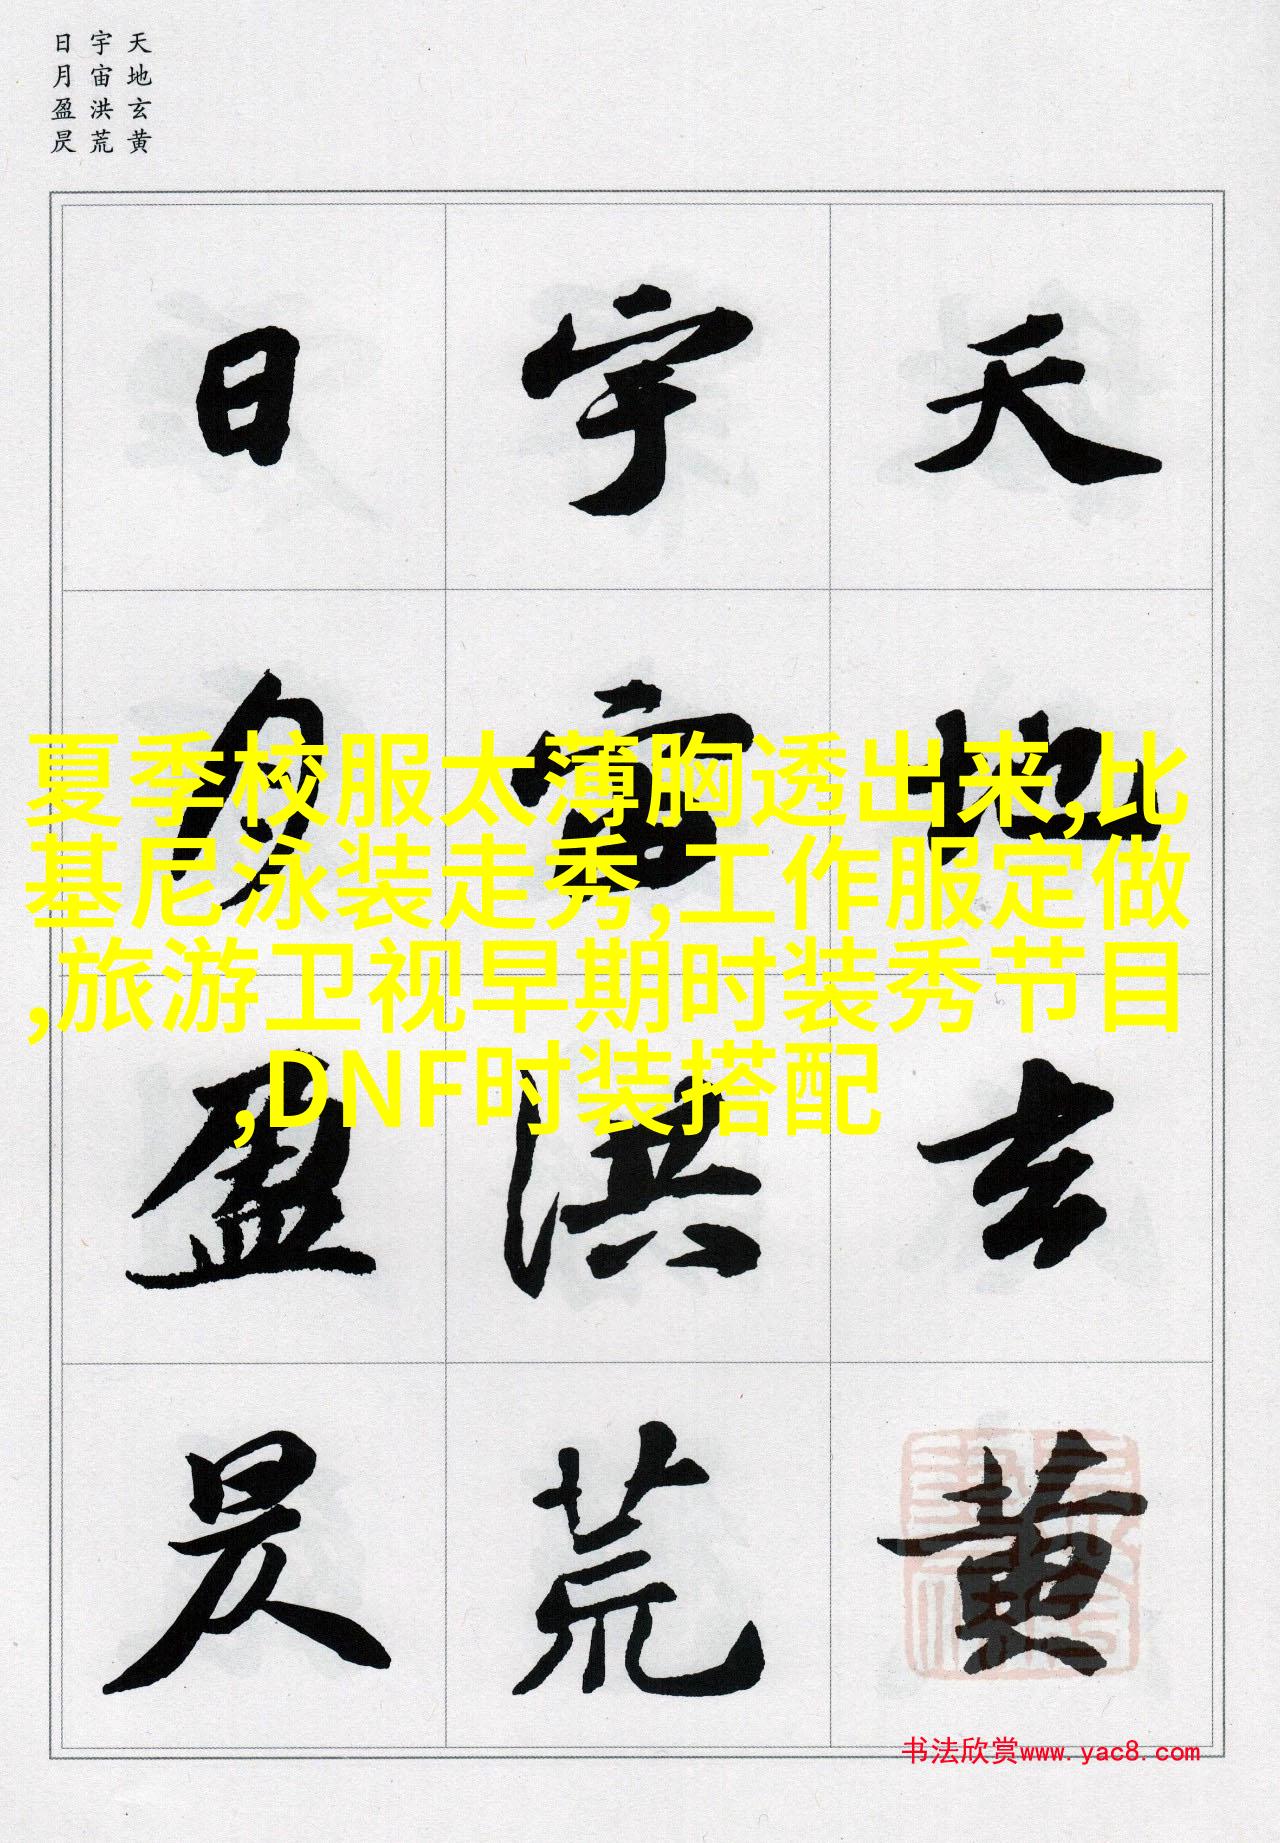 天地玄黄
宇宙洪荒
日月盈昃
天地玄黄
宇宙洪荒
日月盈昃
夏季校服太薄胸透出来,比
基尼泳装走秀,工作服定做
,旅游卫视早期时装秀节目
,DNF时装搭配
书法欣赏www.yac8.com